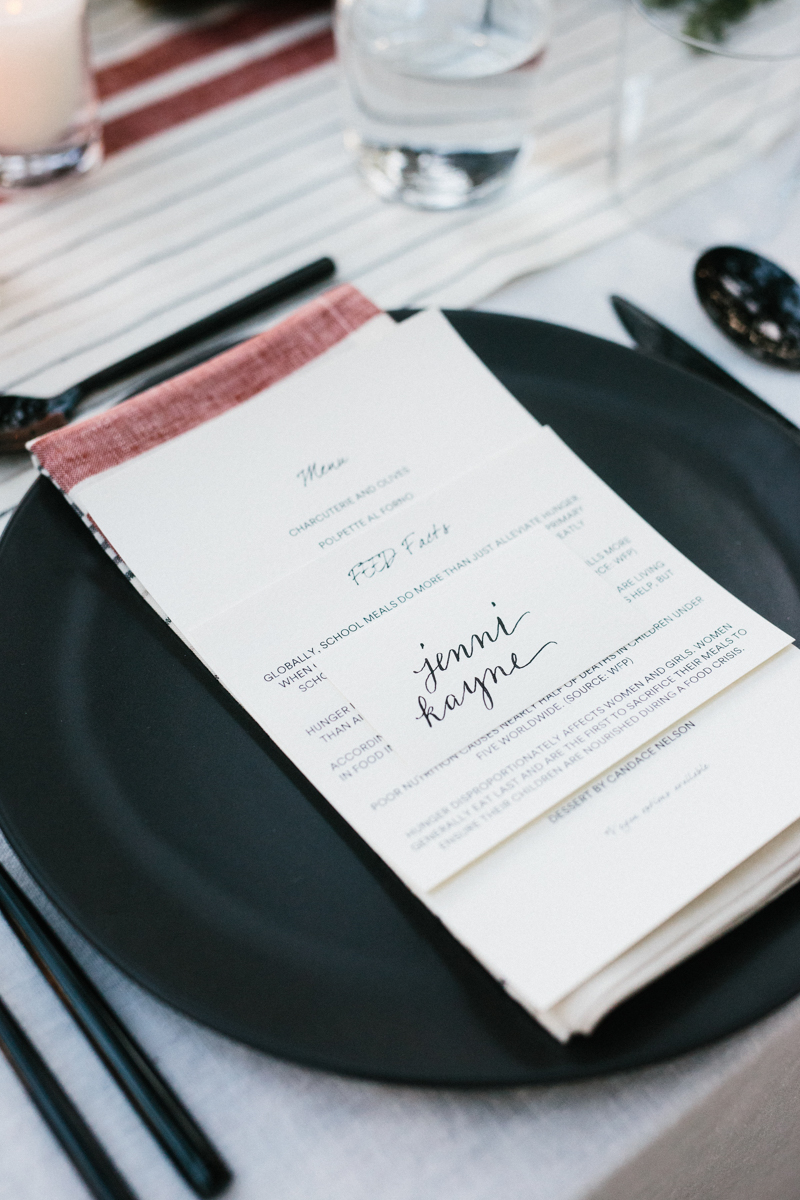 Menu
CHARCUTERIE AND OLIVES
POLPETTE AL FORNO
FEED Facts
GLOBALLY, SCHOOL MEALS DO MORE THAN JUST ALLEVIATE HUNGER
WHEN PRIMARY
ILLS MORE
HUNGER
ARE LIVING
THAN
HELP, BUT
IN FOOD
jenni
kayne
POOR NUTRITION CAUSES NEARLY HALF OF DEATHS IN CHILDREN UNDER
FIVE WORLDWIDE. (SOURCE: WFP)
HUNGER DISPROPORTIONATELY AFFECTS WOMEN AND GIRLS. WOMEN
GENERALLY EAT LAST AND ARE THE FIRST TO SACRIFICE THEIR MEALS TO
ENSURE THEIR CHILDREN ARE NOURISHED DURING A FOOD CRISIS.
DESSERT BY CANDACE NELSON
options available